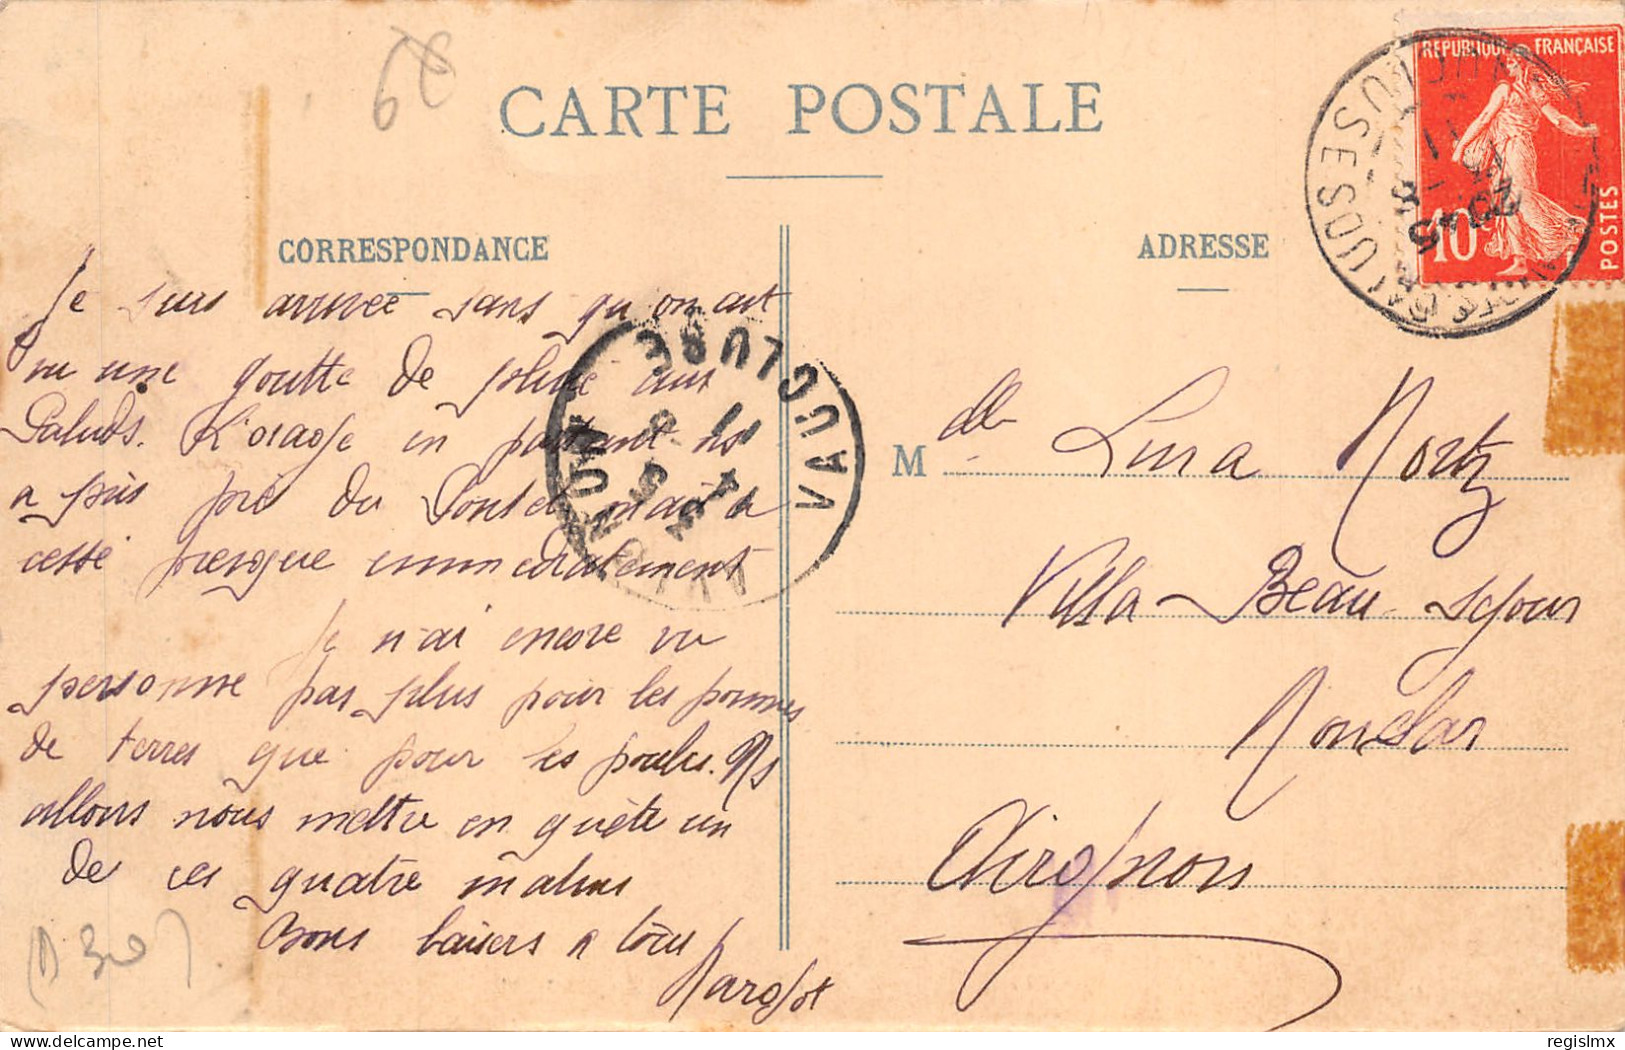 68
CARTE POSTALE
CORRESPONDANCE
ADRESSE
REPUBLIQUE FRANÇAISE
10c
POSTES
VAUCLUSE
Je suis arrivée sans qu'on ait
vu une goutte de pluie aux
Paluds. L'orage en partant ns
a pris près du Pontet mais a
cessé presque immediatement
Je n'ai encore vu
personne pas plus pour les pommes
de terres que pour les poules. Ns
allons nous mettre en quète un
de ces quatre matins
Bons baisers a tous
Margot
Mdlle Lina Mortz
Villa Beau Sejour
Monclar
Avignon
regislmx